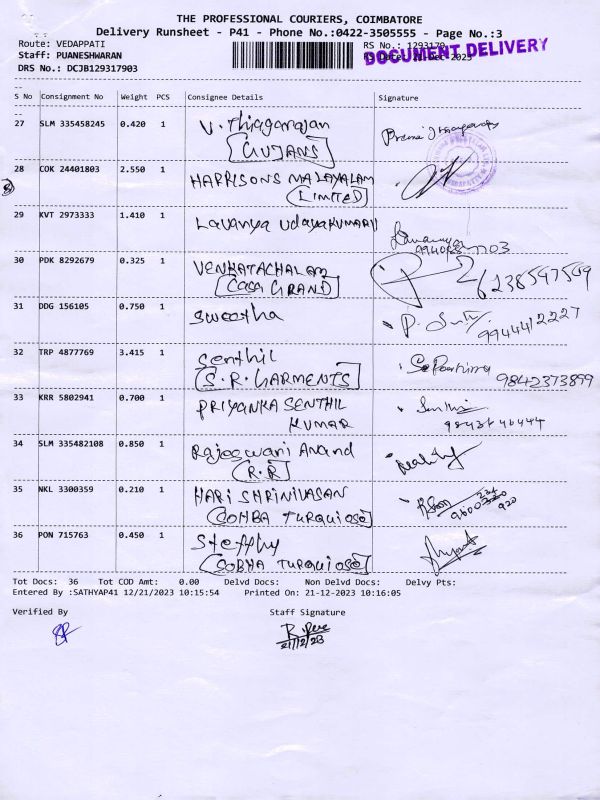 THE PROFESSIONAL COURIERS, COIMBATORE
Delivery Runsheet - P41 - Phone No.:0422-3505555 - Page No.:3
Route: VEDAPPATI
RS No.: 1293179
Staff: PUANESHWARAN
DOCUMENT DELIVERY
DRS No.: DCJB129317903
RS Date: 21-Dec-2023
S No Consignment No Weight PCS Consignee Details Signature
27 SLM 335458245 0.420 1 V. Thiagarajan
28 COK 24401803 2.550 1 HARRISONS MALAYALAM
(LIMITED)
29 KVT 2973333 1.410 1 Lavanya Udayakumar
30 PDK 8292679 0.325 1 VENKATACHALAM 6238597509
(Casa GRAND)
31 DDG 156105 0.750 1 Sweetha 9944412227
32 TRP 4877769 3.415 1 Senthil
(S.R. GARMENTS) 9842373899
33 KRR 5802941 0.700 1 PRIYANKA SENTHIL
KUMAR
34 SLM 335482108 0.850 1 Rajeswari Anand
(R.R)
35 NKL 3300359 0.210 1 HARI SHRINIVASAN
(SOHBA TURQUIOSE)
36 PON 715763 0.450 1 Steffhy
(SOBHA TURQUIOSE)
Tot Docs: 36 Tot COD Amt: 0.00 Delvd Docs: Non Delvd Docs: Delvy Pts:
Entered By :SATHYAP41 12/21/2023 10:15:54 Printed On: 21-12-2023 10:16:05
Verified By Staff Signature
21/12/23